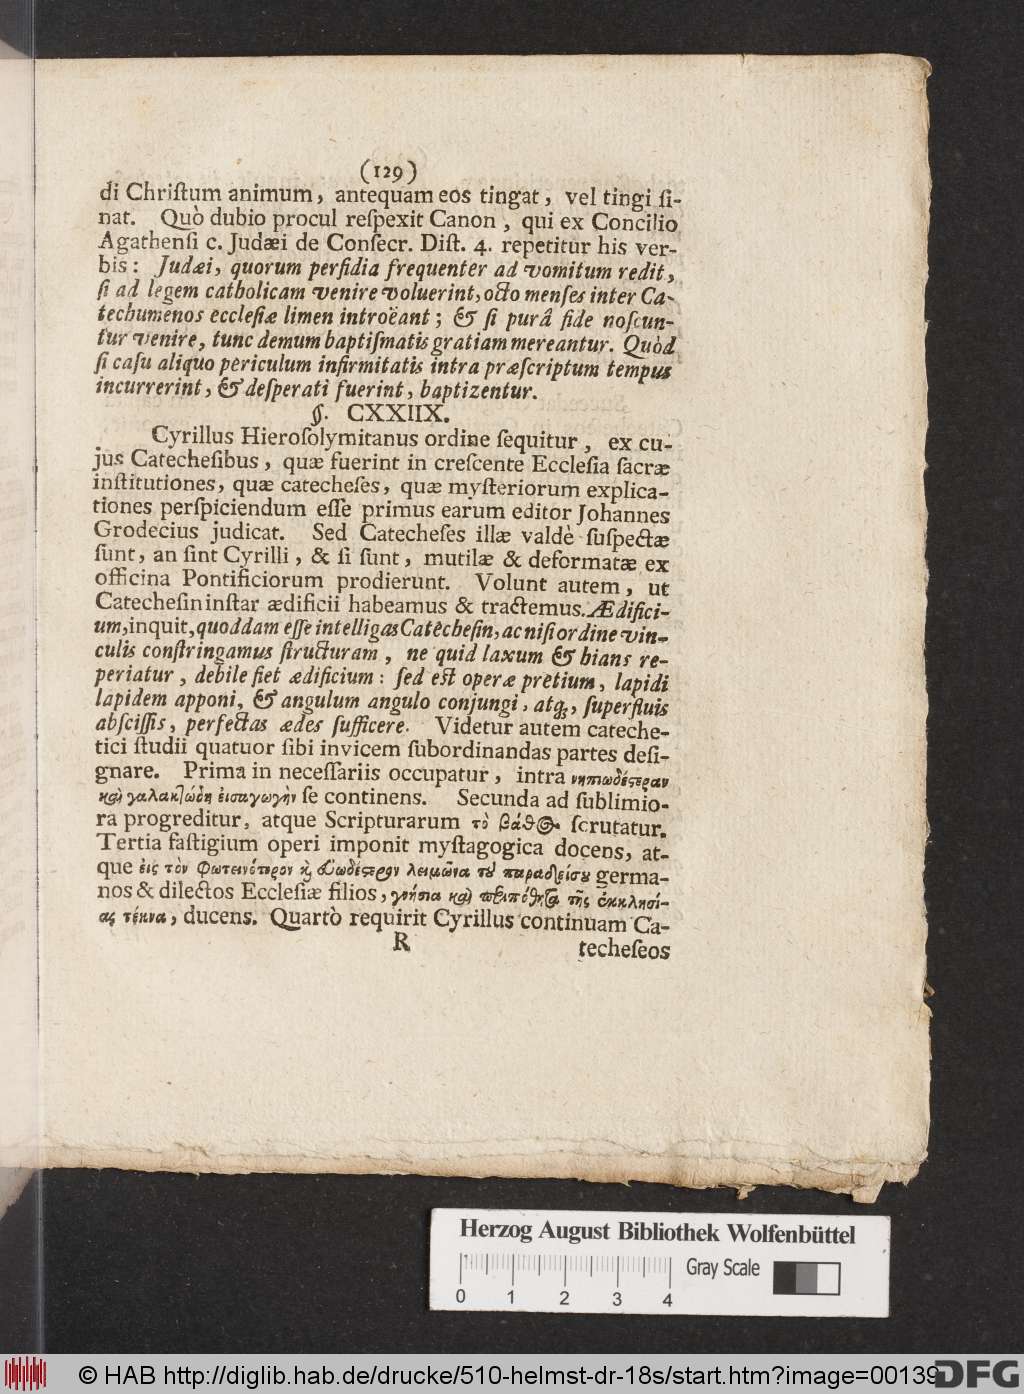 (129)
di Chriſtum animum, antequam eos tingat, vel tingi ſi-
nat. Quò dubio procul reſpexit Canon, qui ex Concilio
Agathenſi c. Judæi de Conſecr. Diſt. 4. repetitur his ver-
bis: Judæi, quorum perfidia frequenter ad vomitum redit,
ſi ad legem catholicam venire voluerint, octo menſes inter Ca-
techumenos eccleſiæ limen introëant; & ſi purâ fide noſcun-
tur venire, tunc demum baptiſmatis gratiam mereantur. Quòd
ſi caſu aliquo periculum infirmitatis intra præſcriptum tempus
incurrerint, & deſperati fuerint, baptizentur.
§. CXXIIX.
Cyrillus Hieroſolymitanus ordine ſequitur, ex cu-
jus Catecheſibus, quæ fuerint in creſcente Eccleſia ſacræ
inſtitutiones, quæ catecheſes, quæ myſteriorum explica-
tiones perſpiciendum eſſe primus earum editor Johannes
Grodecius judicat. Sed Catecheſes illæ valdè ſuſpectæ
ſunt, an ſint Cyrilli, & ſi ſunt, mutilæ & deformatæ ex
officina Pontificiorum prodierunt. Volunt autem, ut
Catecheſin inſtar ædificii habeamus & tractemus. Ædifici-
um, inquit, quoddam eſſe intelligas Catecheſin, ac niſi ordine vin-
culis conſtringamus ſtructuram, ne quid laxum & hians re-
periatur, debile fiet ædificium: ſed eſt operæ pretium, lapidi
lapidem apponi, & angulum angulo conjungi, atq;, ſuperfluis
abſciſſis, perfectas ædes ſufficere. Videtur autem cateche-
tici ſtudii quatuor ſibi invicem ſubordinandas partes deſi-
gnare. Prima in neceſſariis occupatur, intra νηπιωδέςεραν
καὶ γαλακτώδη ἐισαγωγὴν ſe continens. Secunda ad ſublimio-
ra progreditur, atque Scripturarum τὸ βάθος ſcrutatur.
Tertia faſtigium operi imponit myſtagogica docens, at-
que ἐις τὸν Φωτεινότερον κὶ ἐυωδέςερον λειμῶνα τοῦ παραδείσου germa-
nos & dilectos Eccleſiæ filios, γνήσια καὶ περιπόθητα τῆς ἐκκλησί-
ας τέκνα, ducens. Quartò requirit Cyrillus continuam Ca-
R techeſeos
Herzog August Bibliothek Wolfenbüttel
Gray Scale
0 1 2 3 4
© HAB http://diglib.hab.de/drucke/510-helmst-dr-18s/start.htm?image=00139
DFG